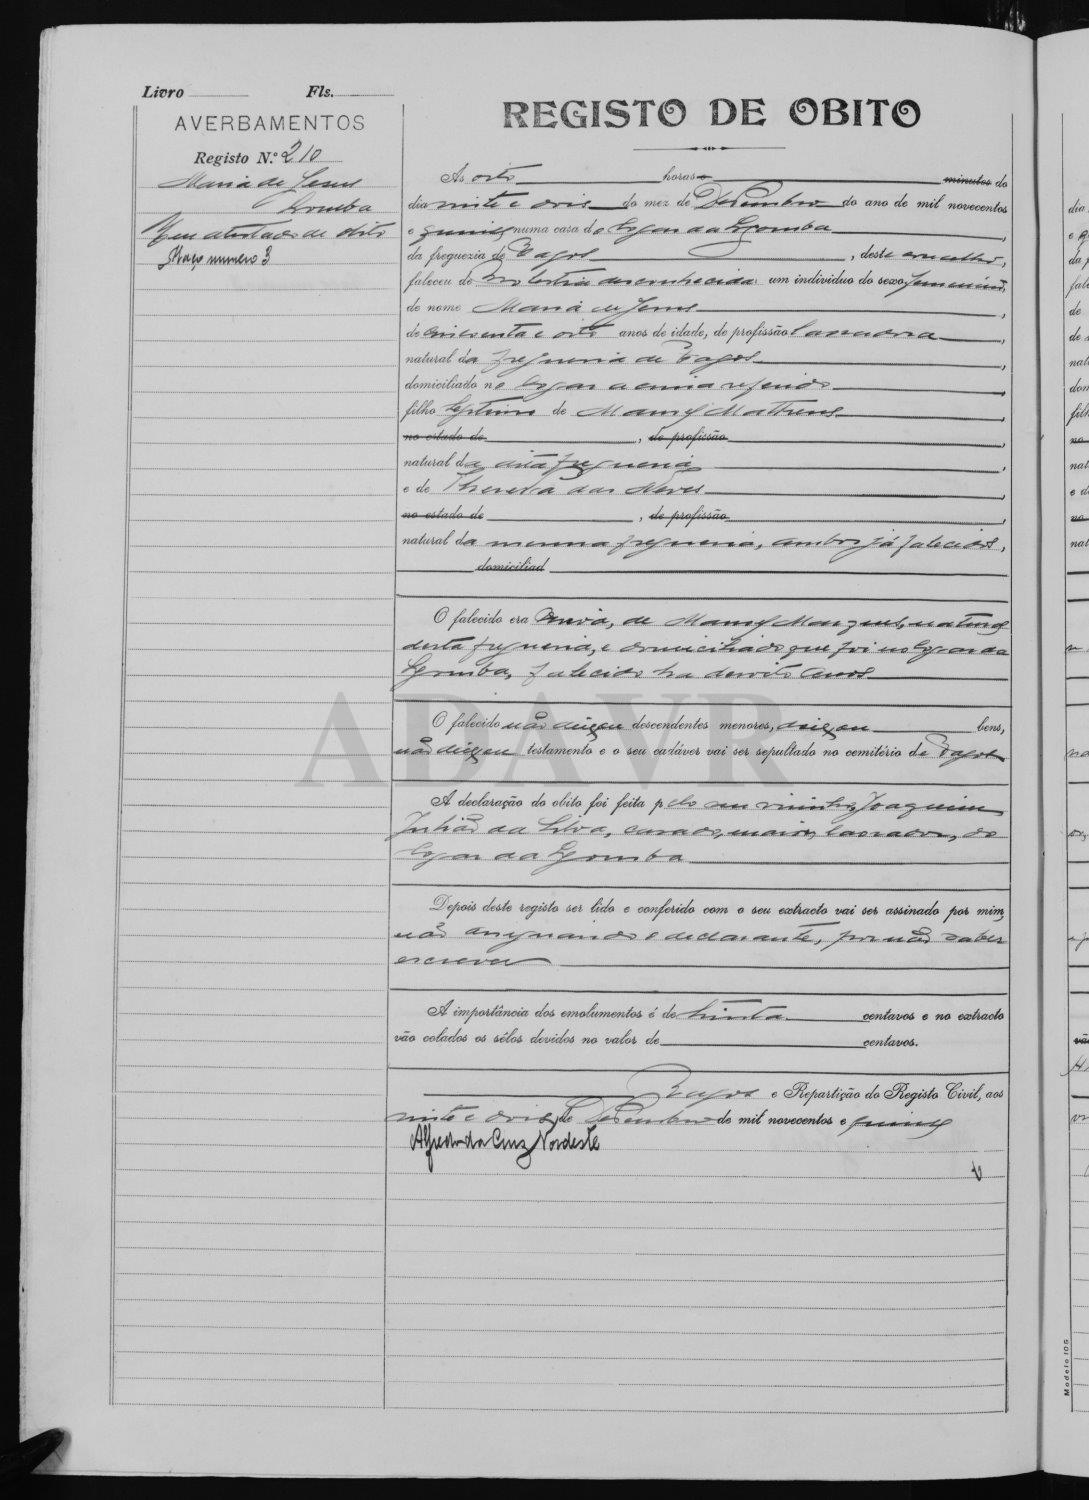 Livro Fls.
AVERBAMENTOS
Registo N.º 210
Maria de Jesus
Lomba
Sem atestado de obito
Maço numero 3
REGISTO DE OBITO
As oito horas e minutos do
dia vinte e dois do mez de Dezembro do ano de mil novecentos
e quinze numa casa do logar da Lomba
da freguezia de Vagos, deste concelho,
faleceu de molestia desconhecida um individuo do sexo femenino,
de nome Maria de Jesus,
de cincoenta e oito anos de idade, de profissão lavradora,
natural da freguesia de Vagos,
domiciliado no logar acima referido,
filho legitimo de Manoel Matheus,
no estado de , de profissão ,
natural da dita freguesia,
e de Thereza das Neves,
no estado de , de profissão ,
natural da mesma freguesia, ambos já falecidos,
domiciliad
O falecido era viuva, de Manoel Marques, natural
desta freguesia, e domiciliado que foi no logar da
Lomba, falecido ha dezoito anos
O falecido não deixou descendentes menores, deixou bens,
não deixou testamento e o seu cadáver vai ser sepultado no cemitério de Vagos
A declaração do obito foi feita pelo seu visinho, Joaquim
Julião da Silva, casado, maior, lavrador, do
logar da Lomba
Depois deste registo ser lido e conferido com o seu extracto vai ser assinado por mim,
não assignando o declarante, por não saber
escrever
A importância dos emolumentos é de trinta centavos e no extracto
vão colados os sêlos devidos no valor de centavos.
Vagos e Repartição do Registo Civil, aos
vinte e dois de Dezembro de mil novecentos e quinze
Alfredo da Cruz Nordeste
ADAVR
Modelo 105